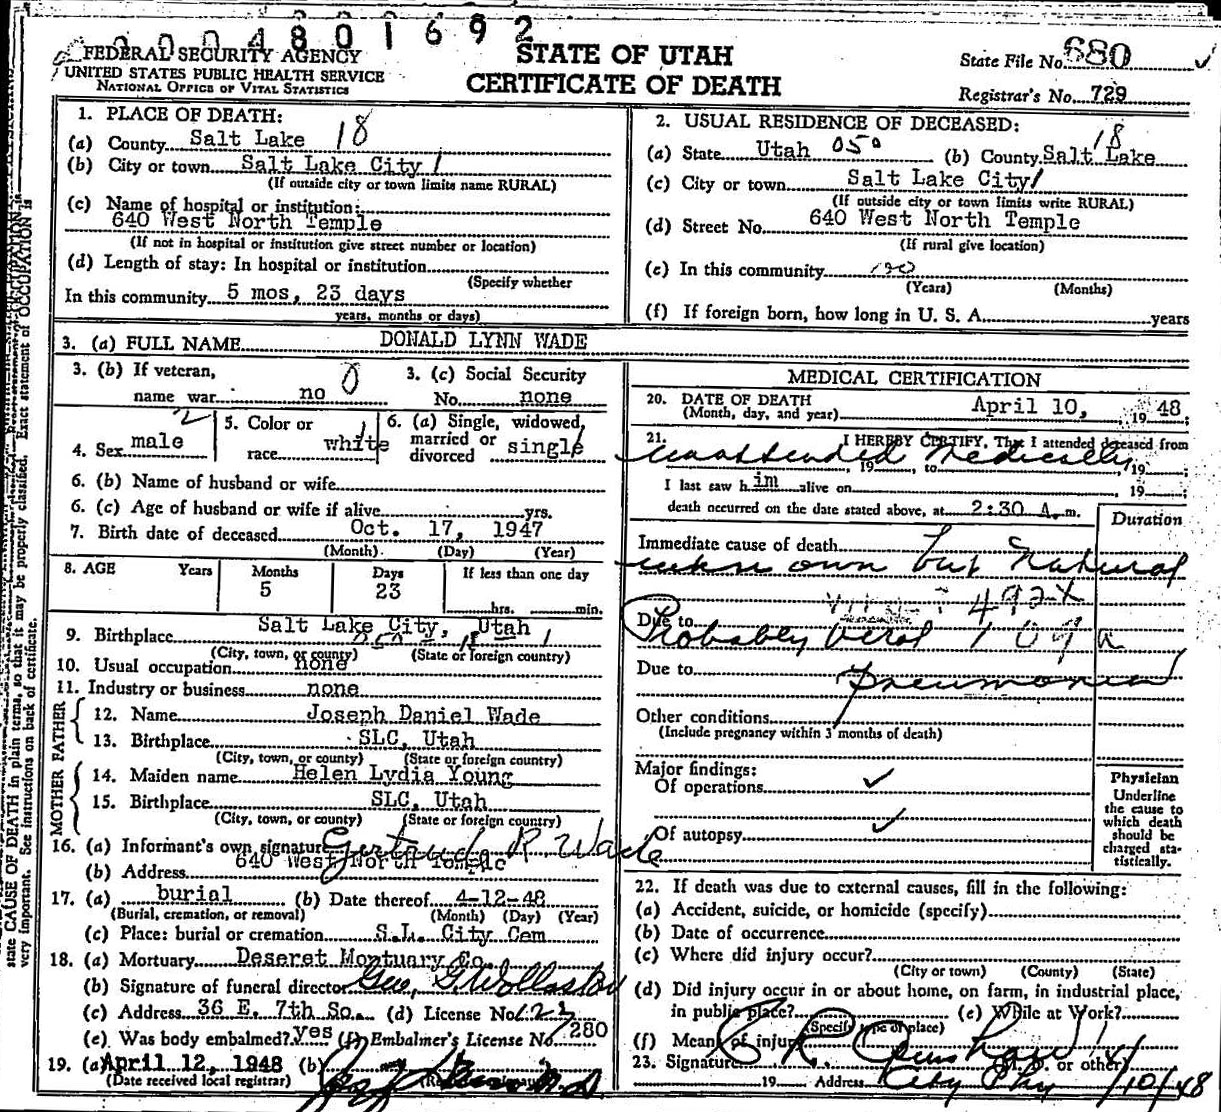 0004801692
FEDERAL SECURITY AGENCY
UNITED STATES PUBLIC HEALTH SERVICE
NATIONAL OFFICE OF VITAL STATISTICS
STATE OF UTAH
CERTIFICATE OF DEATH
State File No. 680
Registrar's No. 729
1. PLACE OF DEATH:
(a) County Salt Lake 18
(b) City or town Salt Lake City 1
(If outside city or town limits name RURAL)
(c) Name of hospital or institution:
640 West North Temple
(If not in hospital or institution give street number or location)
(d) Length of stay: In hospital or institution
(Specify whether
In this community 5 mos, 23 days
years, months or days)
2. USUAL RESIDENCE OF DECEASED:
(a) State Utah 050 (b) County Salt Lake 18
(c) City or town Salt Lake City 1
(If outside city or town limits write RURAL)
(d) Street No. 640 West North Temple
(If rural give location)
(e) In this community
(Years) (Months)
(f) If foreign born, how long in U. S. A. years
3. (a) FULL NAME DONALD LYNN WADE
3. (b) If veteran, name war no 0
3. (c) Social Security No. none
4. Sex male 2
5. Color or race white 1
6. (a) Single, widowed, married or divorced single 1
6. (b) Name of husband or wife
6. (c) Age of husband or wife if alive yrs.
7. Birth date of deceased Oct. 17, 1947
(Month) (Day) (Year)
8. AGE Years Months Days If less than one day
5 23 hrs. min.
9. Birthplace Salt Lake City, Utah
(City, town, or county) (State or foreign country)
10. Usual occupation none
11. Industry or business none
FATHER
12. Name Joseph Daniel Wade
13. Birthplace SLC, Utah
(City, town, or county) (State or foreign country)
MOTHER
14. Maiden name Helen Lydia Young
15. Birthplace SLC, Utah
(City, town, or county) (State or foreign country)
16. (a) Informant's own signature Gertrude R Wade
(b) Address 640 West North Temple
17. (a) burial (b) Date thereof 4-12-48
(Burial, cremation, or removal) (Month) (Day) (Year)
(c) Place: burial or cremation S.L. City Cem
18. (a) Mortuary Deseret Mortuary Co.
(b) Signature of funeral director Geo. G Wollaston
(c) Address 36 E. 7th So. (d) License No. 123
(e) Was body embalmed? yes (f) Embalmer's License No. 280
19. (a) April 12, 1948 (b)
(Date received local registrar)
MEDICAL CERTIFICATION
20. DATE OF DEATH
(Month, day, and year) April 10, 1948
21. I HEREBY CERTIFY, That I attended deceased from
unattended medically, 19 , to 19 ;
I last saw him alive on 19 ;
death occurred on the date stated above, at 2:30 A. m.
Duration
Immediate cause of death
unknown but Natural
492X
Due to Probably Viral 109 a
Due to Pneumonia
Other conditions
(Include pregnancy within 3 months of death)
Major findings:
Of operations ✓
Of autopsy ✓
Physician
Underline
the cause to
which death
should be
charged sta-
tistically.
22. If death was due to external causes, fill in the following:
(a) Accident, suicide, or homicide (specify)
(b) Date of occurrence
(c) Where did injury occur?
(City or town) (County) (State)
(d) Did injury occur in or about home, on farm, in industrial place,
in public place? (e) While at Work?
(Specify type of place)
(f) Mean of injury
23. Signature M. D. or other
19 Address City Phy 4/10/48
state CAUSE OF DEATH in plain terms, so that it may be properly classified. Exact statement of OCCUPATION is
very important. See instructions on back of certificate.